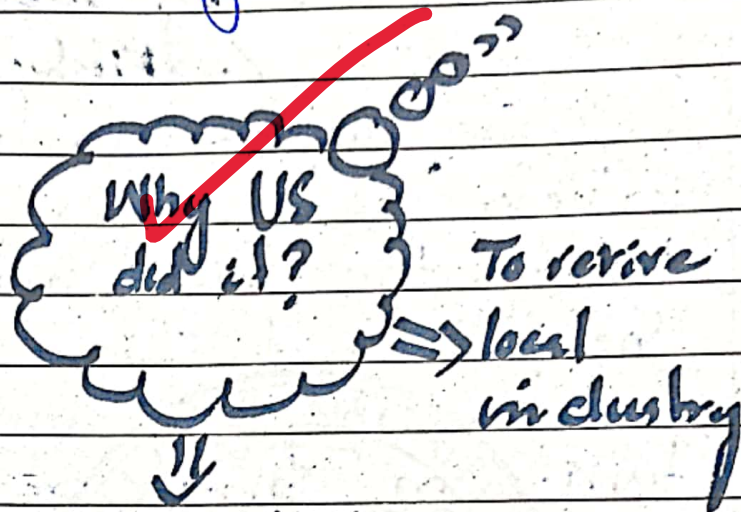 Why US
did it?
To revive
=> local
industry